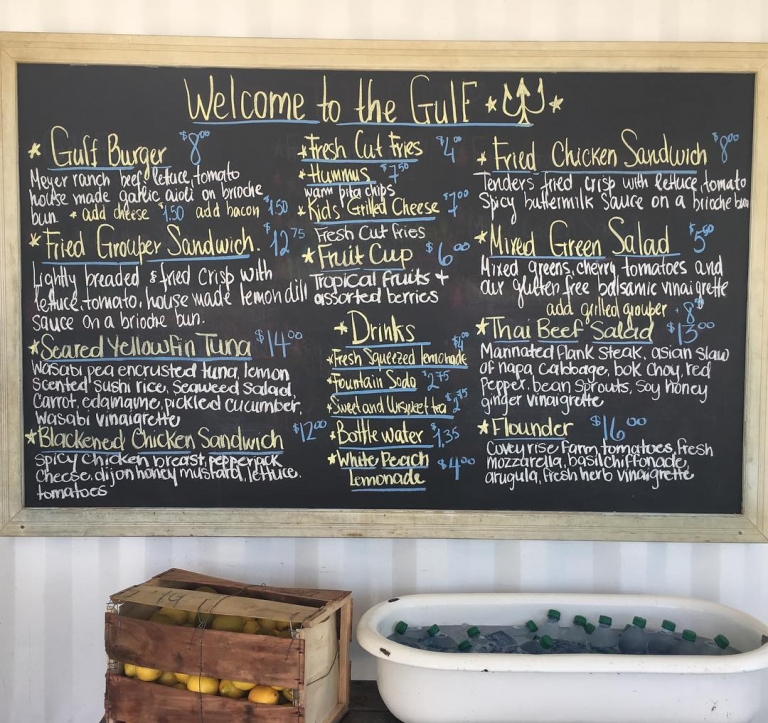 Welcome to the Gulf
Gulf Burger $8.00
Meyer ranch beef, lettuce, tomato
house made garlic aioli on brioche
bun * add cheese $1.50 add bacon $1.50
Fried Grouper Sandwich. $12.75
Lightly breaded & fried crisp with
lettuce, tomato, house made lemon dill
sauce on a brioche bun.
Seared Yellowfin Tuna $14.00
Wasabi pea encrusted tuna, lemon
scented sushi rice, seaweed salad,
carrot, edamame, pickled cucumber,
wasabi vinaigrette
Blackened Chicken Sandwich $12.00
spicy chicken breast, pepperjack
cheese, dijon honey mustard, lettuce,
tomatoes
Fresh Cut Fries $4.00
Hummus $7.50
warm pita chips
Kid's Grilled Cheese $7.00
Fresh Cut fries
Fruit Cup $6.00
Tropical fruits +
assorted berries
Drinks
Fresh Squeezed lemonade $4.00
Fountain Soda $2.75
Sweet and Unsweet tea $2.75
Bottle water $1.35
White Peach $4.00
Lemonade
Fried Chicken Sandwich $8.00
Tenders fried crisp with lettuce, tomato
Spicy buttermilk sauce on a brioche bun
Mixed Green Salad $5.00
Mixed greens, cherry tomatoes and
our gluten free balsamic vinaigrette
add grilled grouper $8.00
Thai Beef Salad $13.00
Marinated flank steak, asian slaw
of napa cabbage, bok choy, red
pepper, bean sprouts, soy honey
ginger vinaigrette
Flounder $16.00
Covey rise farm tomatoes, fresh
mozzarella, basil chiffonade,
arugula, fresh herb vinaigrette